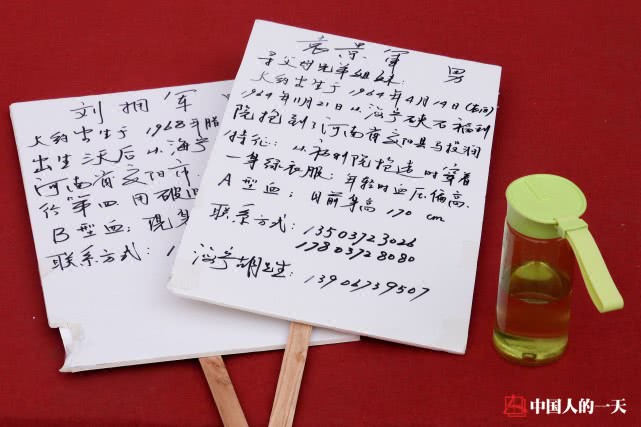 袁景军 男
寻父母兄弟姐妹:
大约出生于1964年4月14日(农历)
1964年11月21日从海宁硖石福利
院抱到河南省安阳县马投涧
特征: 从福利院抱造时穿着
一身绿衣服; 年轻时血压偏高.
A型血; 目前身高 170 cm
联系方式: 13503723026
17803728080
海宁胡生: 13906739507
刘拥军
大约出生于1968年腊
出生三天后 从海宁
河南省安阳市
B型血;
联系方式: 1
中国人的一天